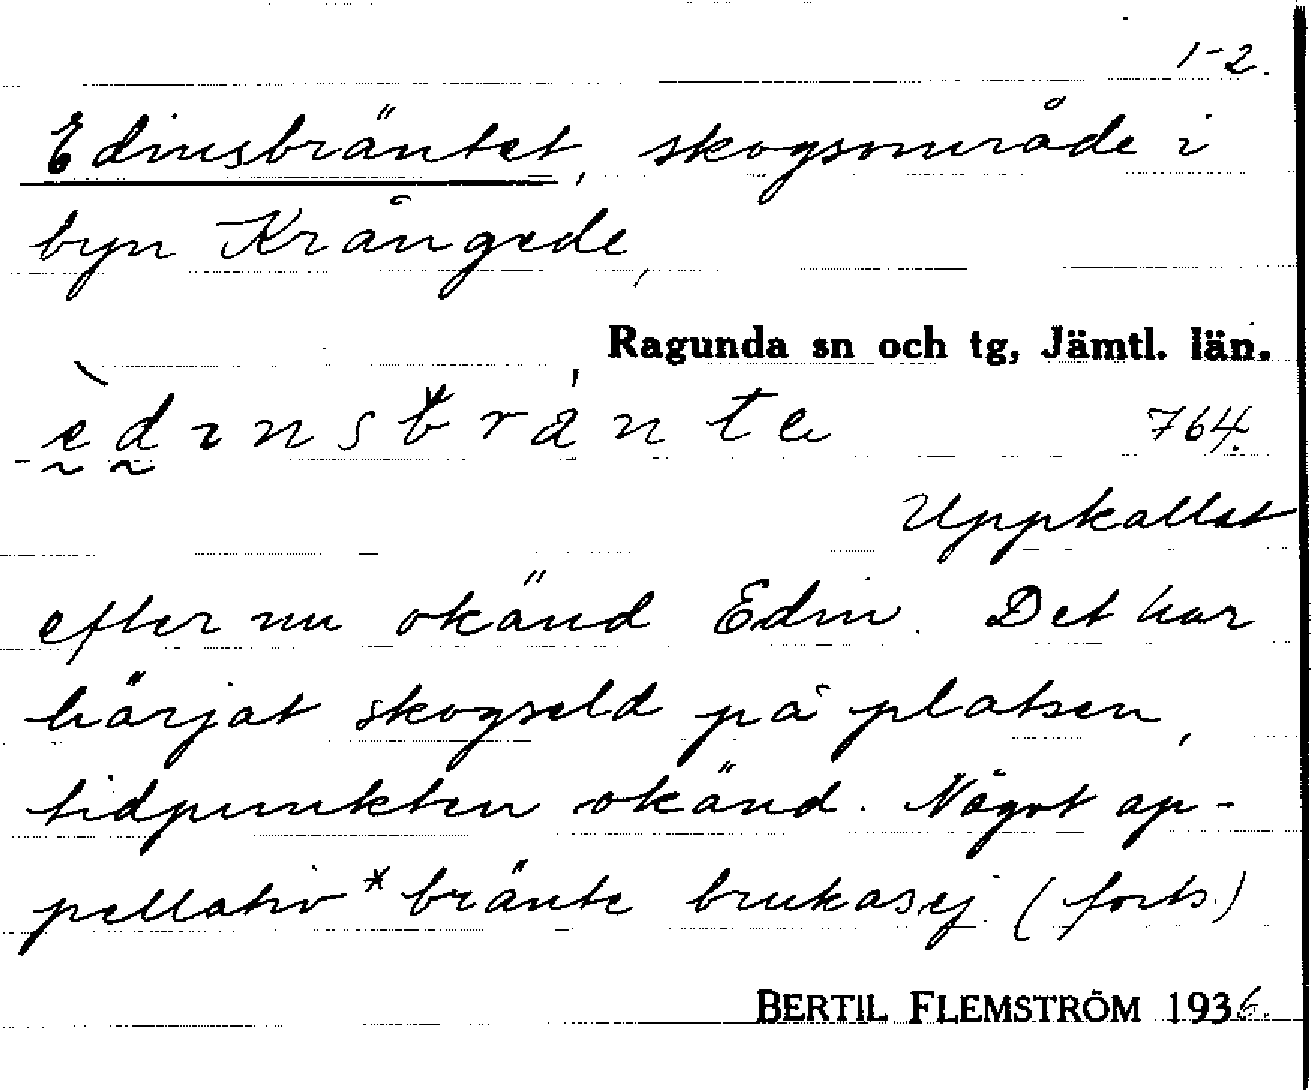 1-2.
Edinsbräntet, skogsområde i
byn Krångede,
Ragunda sn och tg, Jämtl. län.
èdınsbrànte 764.
Uppkallat
efter nu okänd Edin. Det har
härjat skogseld på platsen,
tidpunkten okänd. Något ap-
pellativ *bränte brukas ej. (forts.)
BERTIL FLEMSTRÖM 1936.